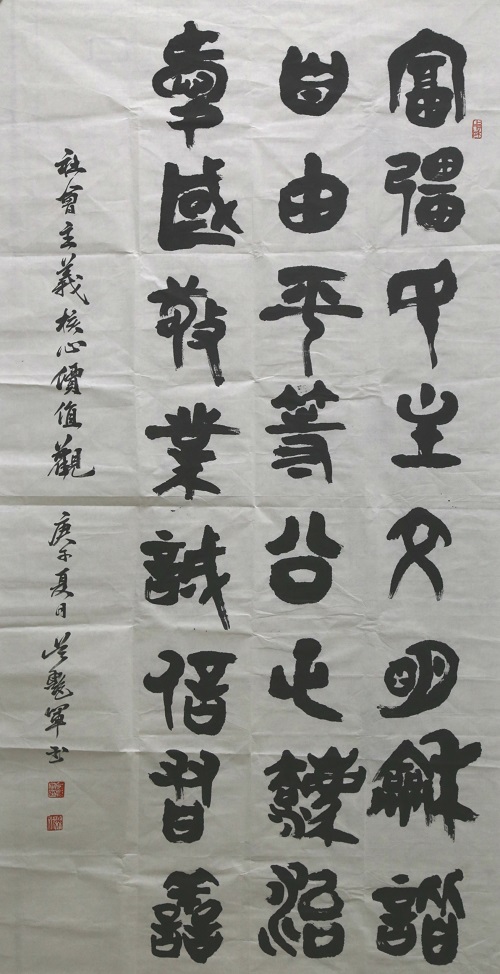 富彊民主文明龢諧
自由平等公正灋治
愛國敬業誠信友譱
社會主義核心價值觀 庚子夏日 吴軍书